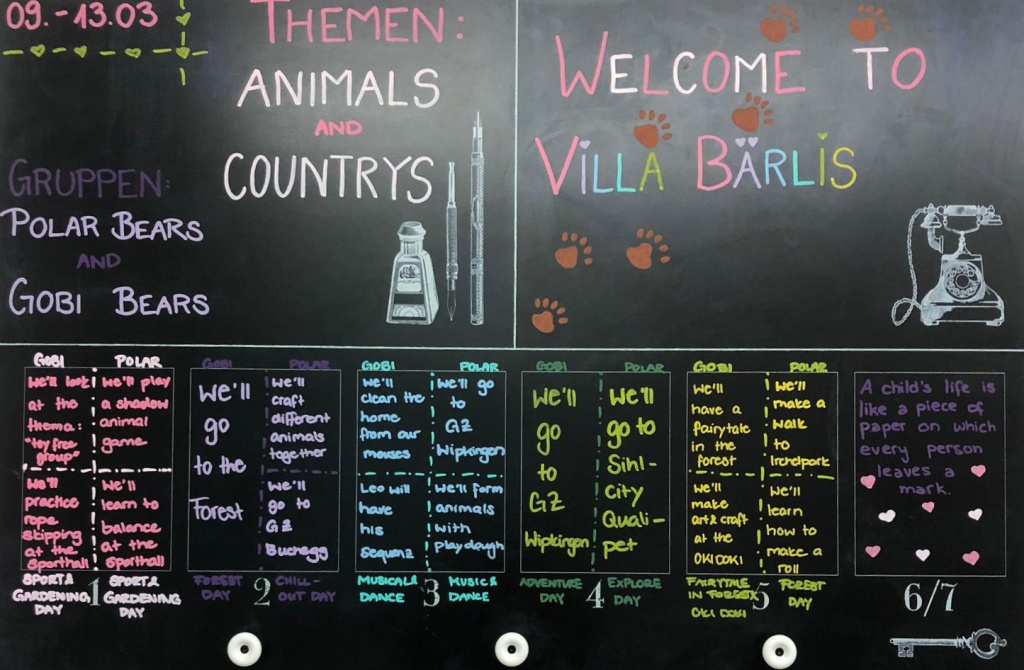 09.-13.03
THEMEN:
ANIMALS
AND
COUNTRYS
GRUPPEN:
POLAR BEARS
AND
GOBI BEARS
WELCOME TO
VILLA BÄRLIS
GOBI
We'll look
at the
thema:
"toy free
group"
We'll
practice
rope
skipping
at the
sporthall
SPORT &
GARDENING
DAY
POLAR
we'll play
a shadow
animal
game
We'll
learn to
balance
at the
sporthall
SPORT &
GARDENING
DAY
1
GOBI
We'll
go
to the
Forest
FOREST
DAY
POLAR
we'll
craft
different
animals
together
we'll
go to
GZ
Buchegg
CHILL-
OUT DAY
2
GOBI
we'll
clean the
home
from our
mouses
Leo will
have
his
Sequenz
MUSICAL&
DANCE
POLAR
we'll go
to
GZ
Wipkingen
we'll form
animals
with
playdough
MUSIC&
DANCE
3
GOBI
We'll
go
to
GZ
Wipkingen
ADVENTURE
DAY
POLAR
We'll
go to
Sihl-
city
Quali-
pet
EXPLORE
DAY
4
GOBI
we'll
have a
fairytale
in the
forest
we'll
make
art & craft
at the
OKIDOKI
FAIRYTALE
IN FOREST
OKIDOKI
POLAR
we'll
make a
walk
to
Irchelpark
we'll
learn
how to
make a
roll
FOREST
DAY
5
A child's life is
like a piece of
paper on which
every person
leaves a
mark.
6/7